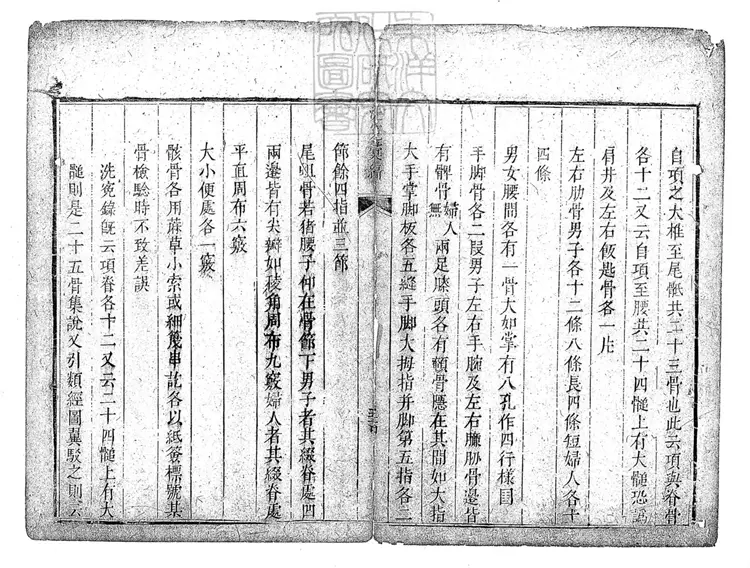 自項之大椎至尾骶共二十三骨也此云項與脊骨
各十二又云自項至腰共二十四髓上有大髓恐訛
肩井及左右飯匙骨各一片
左右肋骨男子各十二條八條長四條短婦人各十
四條
男女腰間各有一骨大如掌有八孔作四行樣
手脚骨各二段男子左右手腕及左右臁肕骨邊皆
有髀骨婦人無兩足膝頭各有顊骨隱在其間如大指
大手掌脚板各五縫手脚大拇指并脚第五指各二
節餘四指並三節
尾蛆骨若猪腰子仰在骨節下男子者其綴脊處凹
兩邊皆有尖瓣如稜角周布九竅婦人者其綴脊處
平直周布六竅
大小便處各一竅
骸骨各用蔴草小索或細篾串訖各以紙簽標號某
骨檢驗時不致差誤
洗寃錄旣云項脊各十二又云二十四髓上有大
髓則是二十五骨集說又引類經圖翼駁之則云